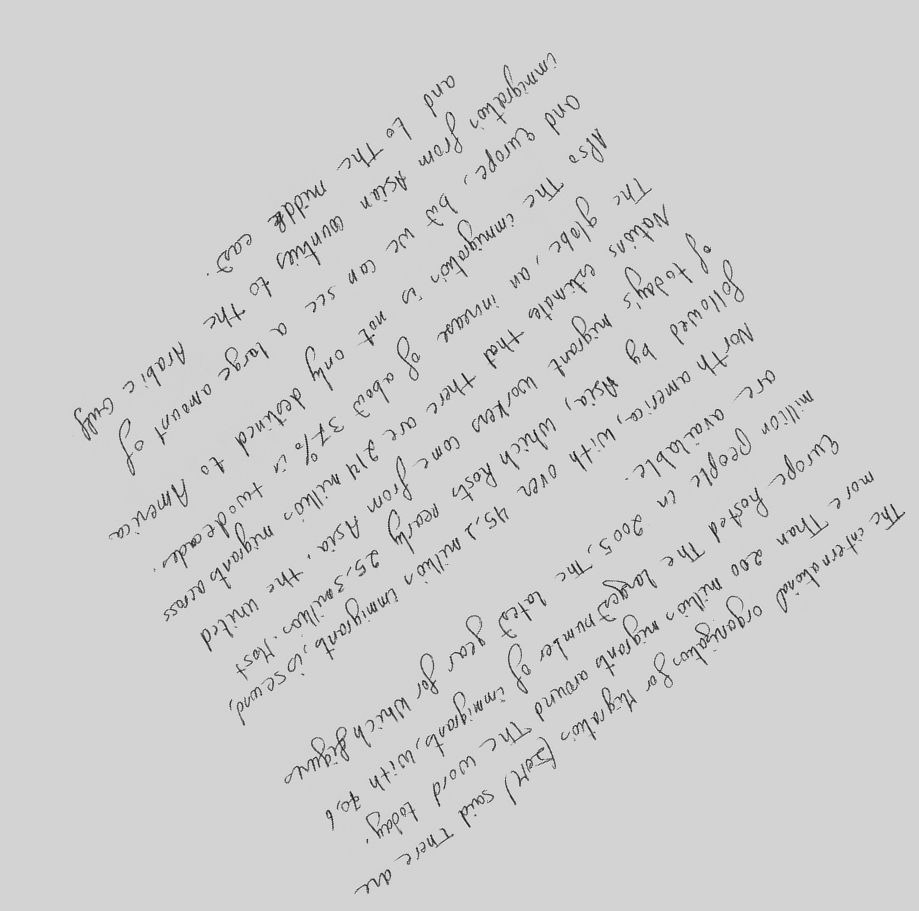 The international organization for Migration (IOM) said There are
more Than 200 million migrants around The word today.
Europe hosted The largest number of immigrants, with 70,6
million people in 2005, The latest year for which figures
are available.
North america, with over 45,1 million immigrants, is second,
followed by Asia, which hosts nearly 25,3 million. Most
of today's migrant workers come from Asia. the united
Nations estimates that there are 214 million migrants across
The globe, an increase of about 37% in two decades.
Also The immigration is not only destined to America
and Europe, but we can see a large amount of
immigration from Asian countries to the Arabic Gulf
and to the middle east.